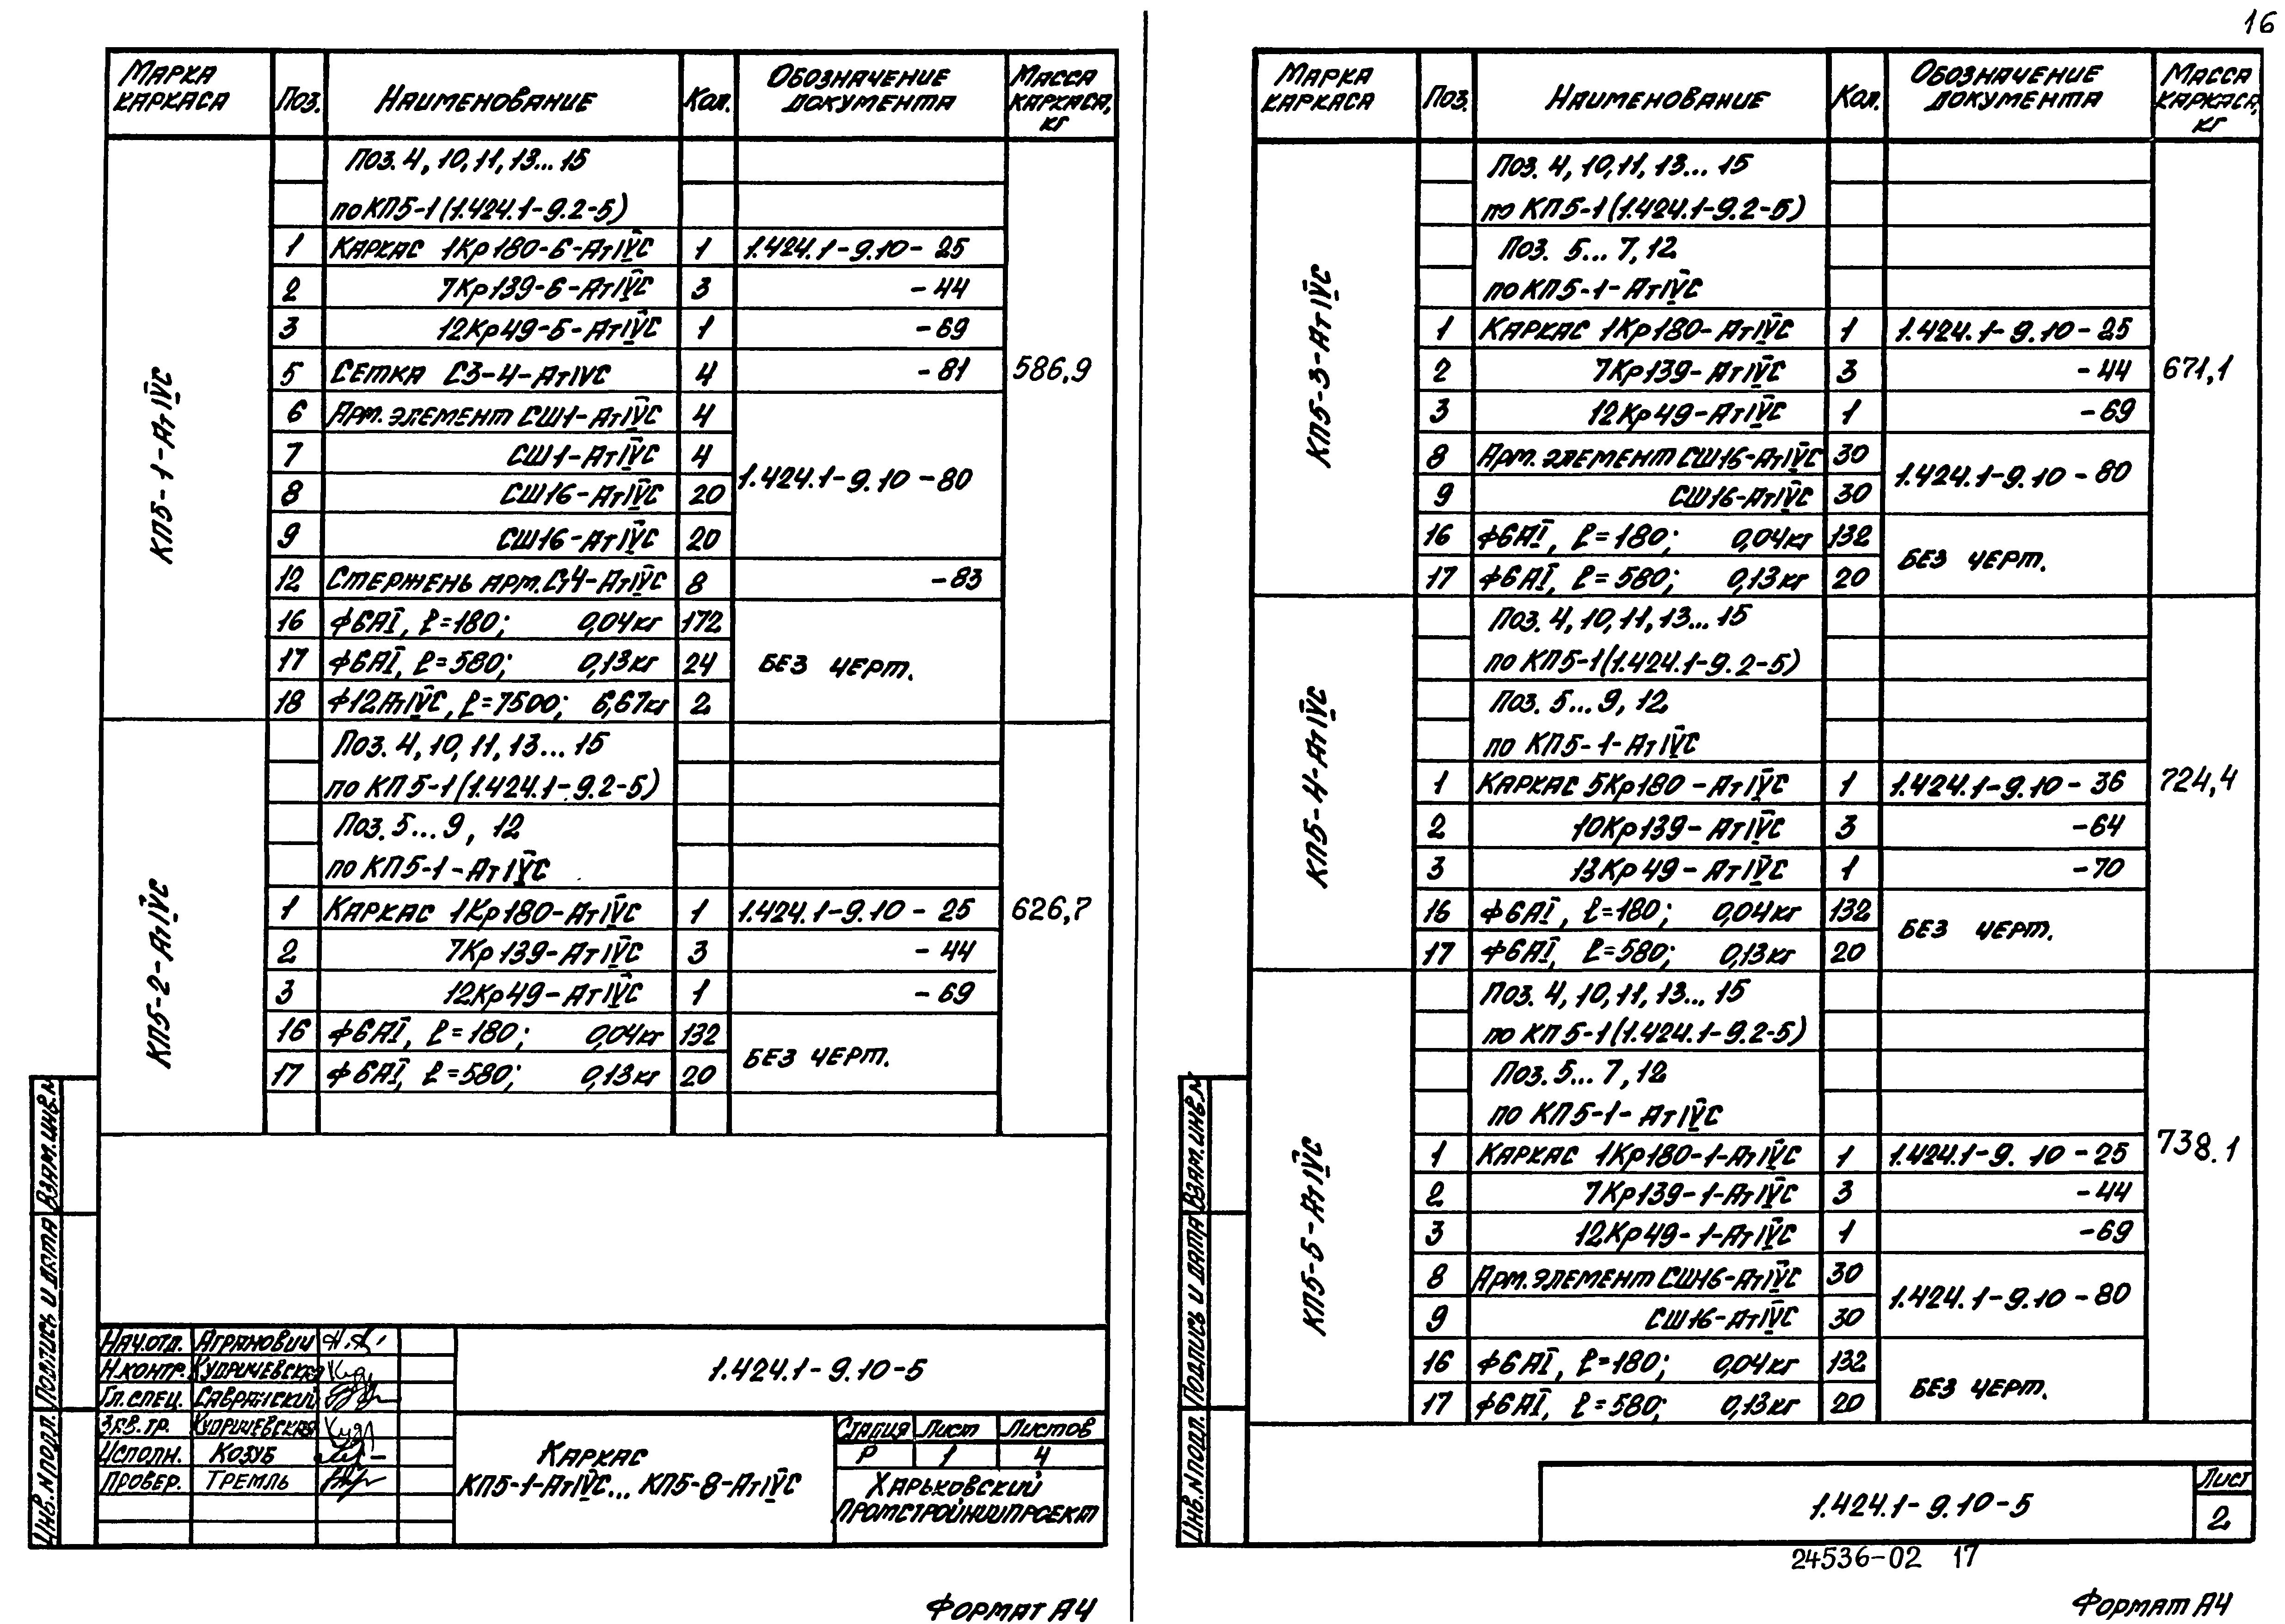 16
Марка каркаса Поз. Наименование Кол. Обозначение документа Масса каркаса, кг
КП5-1-АтIVС
Поз. 4, 10, 11, 13... 15
по КП5-1 (1.424.1-9.2-5)
1 Каркас 1Кр180-6-АтIVС 1 1.424.1-9.10-25
2 7Кр139-6-АтIVС 3 -44
3 12Кр49-5-АтIVС 1 -69
5 Сетка С3-4-АтIVС 4 -81 586,9
6 Арм. элемент СШ1-АтIVС 4
7 СШ1-АтIVС 4
1.424.1-9.10-80
8 СШ16-АтIVС 20
9 СШ16-АтIVС 20
12 Стержень арм. Ст4-АтIVС 8 -83
16 ф6АI, ℓ=180; 0,04кг 172
17 ф6АI, ℓ=580; 0,13кг 24 без черт.
18 ф12АтIVС, ℓ=7500; 6,67кг 2
КП5-2-АтIVС
Поз. 4, 10, 11, 13... 15
по КП5-1 (1.424.1-9.2-5)
Поз. 5... 9, 12
по КП5-1-АтIVС
1 Каркас 1Кр180-АтIVС 1 1.424.1-9.10-25 626,7
2 7Кр139-АтIVС 3 -44
3 12Кр49-АтIVС 1 -69
16 ф6АI, ℓ=180; 0,04кг 132
без черт.
17 ф6АI, ℓ=580; 0,13кг 20
Взам. инв. №
Подпись и дата
Инв. № подл.
Нач. отд. Агранович
Н. контр. Кудричевская
Гл. спец. Савранский
Зав. гр. Кудричевская
Исполн. Козуб
Провер. Тремль
1.424.1-9.10-5
Каркас
КП5-1-АтIVС... КП5-8-АтIVС
Стадия Лист Листов
Р 1 4
Харьковский
Промстройниипроект
Формат А4
Марка каркаса Поз. Наименование Кол. Обозначение документа Масса каркаса, кг
КП5-3-АтIVС
Поз. 4, 10, 11, 13... 15
по КП5-1 (1.424.1-9.2-5)
Поз. 5... 7, 12
по КП5-1-АтIVС
1 Каркас 1Кр180-АтIVС 1 1.424.1-9.10-25
2 7Кр139-АтIVС 3 -44 671,1
3 12Кр49-АтIVС 1 -69
8 Арм. элемент СШ16-АтIVС 30
1.424.1-9.10-80
9 СШ16-АтIVС 30
16 ф6АI, ℓ=180; 0,04кг 132
без черт.
17 ф6АI, ℓ=580; 0,13кг 20
КП5-4-АтIVС
Поз. 4, 10, 11, 13... 15
по КП5-1 (1.424.1-9.2-5)
Поз. 5... 9, 12
по КП5-1-АтIVС
1 Каркас 5Кр180-АтIVС 1 1.424.1-9.10-36 724,4
2 10Кр139-АтIVС 3 -64
3 13Кр49-АтIVС 1 -70
16 ф6АI, ℓ=180; 0,04кг 132
без черт.
17 ф6АI, ℓ=580; 0,13кг 20
КП5-5-АтIVС
Поз. 4, 10, 11, 13... 15
по КП5-1 (1.424.1-9.2-5)
Поз. 5... 7, 12
по КП5-1-АтIVС
1 Каркас 1Кр180-1-АтIVС 1 1.424.1-9.10-25 738.1
2 7Кр139-1-АтIVС 3 -44
3 12Кр49-1-АтIVС 1 -69
8 Арм. элемент СШ16-АтIVС 30
1.424.1-9.10-80
9 СШ16-АтIVС 30
16 ф6АI, ℓ=180; 0,04кг 132
без черт.
17 ф6АI, ℓ=580; 0,13кг 20
Взам. инв. №
Подпись и дата
Инв. № подл.
1.424.1-9.10-5
Лист
2
24536-02 17
Формат А4